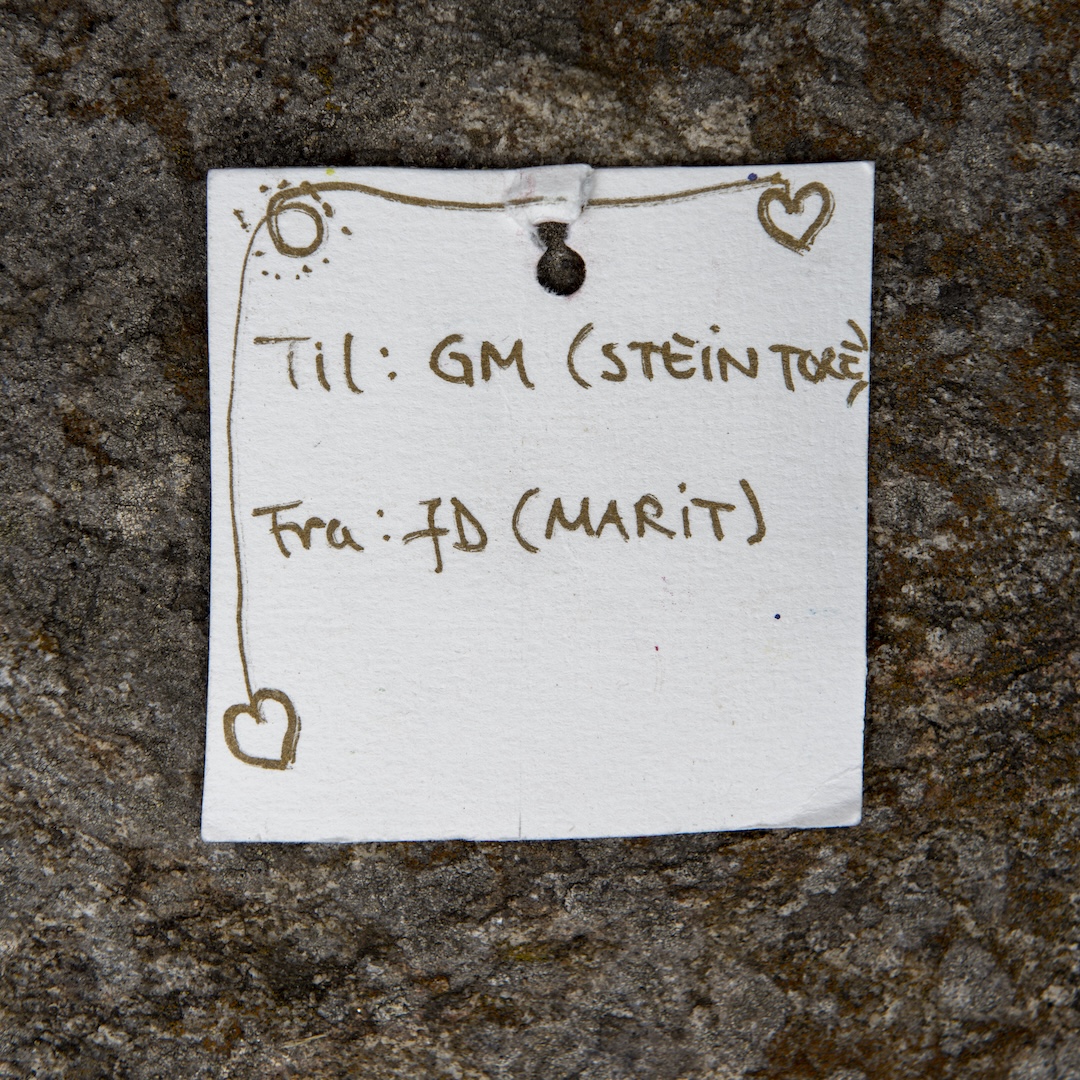 Til: GM (STEIN TORE)
Fra: JD (MARIT)